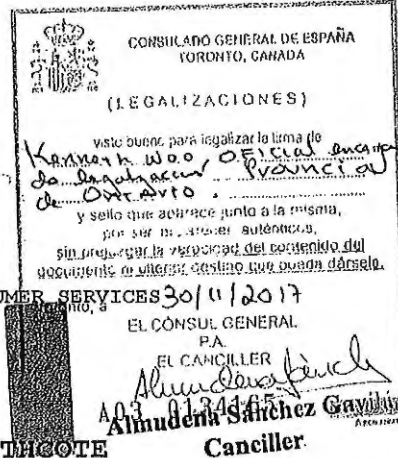 CONSULADO GENERAL DE ESPAÑA
TORONTO, CANADA
(LEGALIZACIONES)
visto bueno para legalizar la firma de
Kenneth Woo, Oficial
de Provincial
de Ontario
y sello que aparece junto a la misma,
por ser auténticos,
sin prejuzgar la veracidad del contenido del
documento ni ulterior destino que pueda dársele.
UMER SERVICES 30/11/2017
EL CÓNSUL GENERAL
P.A.
EL CANCILLER
A03
Almudena Sánchez
THCOTE
Canciller